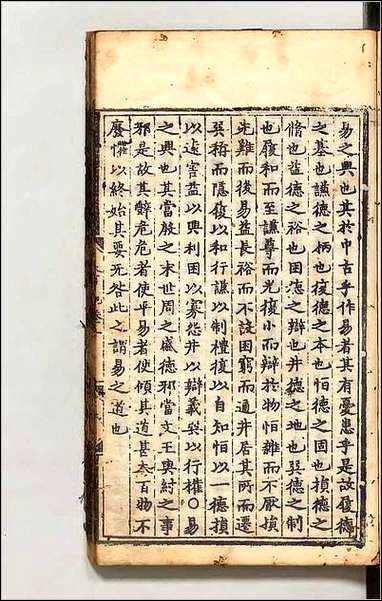 易之興也其於中古乎作易者其有憂患乎是故履德
之基也謙德之柄也復德之本也恒德之固也損德之
脩也益德之裕也困德之辯也井德之地也巽德之制
也履和而至謙尊而光復小而辯於物恒雜而不厭損
先難而後易益長裕而不設困窮而通井居其所而遷
巽稱而隱履以和行謙以制禮復以自知恒以一德損
以遠害益以興利困以寡怨井以辯義巽以行權○易
之興也其當殷之末世周之盛德邪當文王與紂之事
邪是故其辭危危者使平易者使傾其道甚大百物不
廢懼以終始其要无咎此之謂易之道也